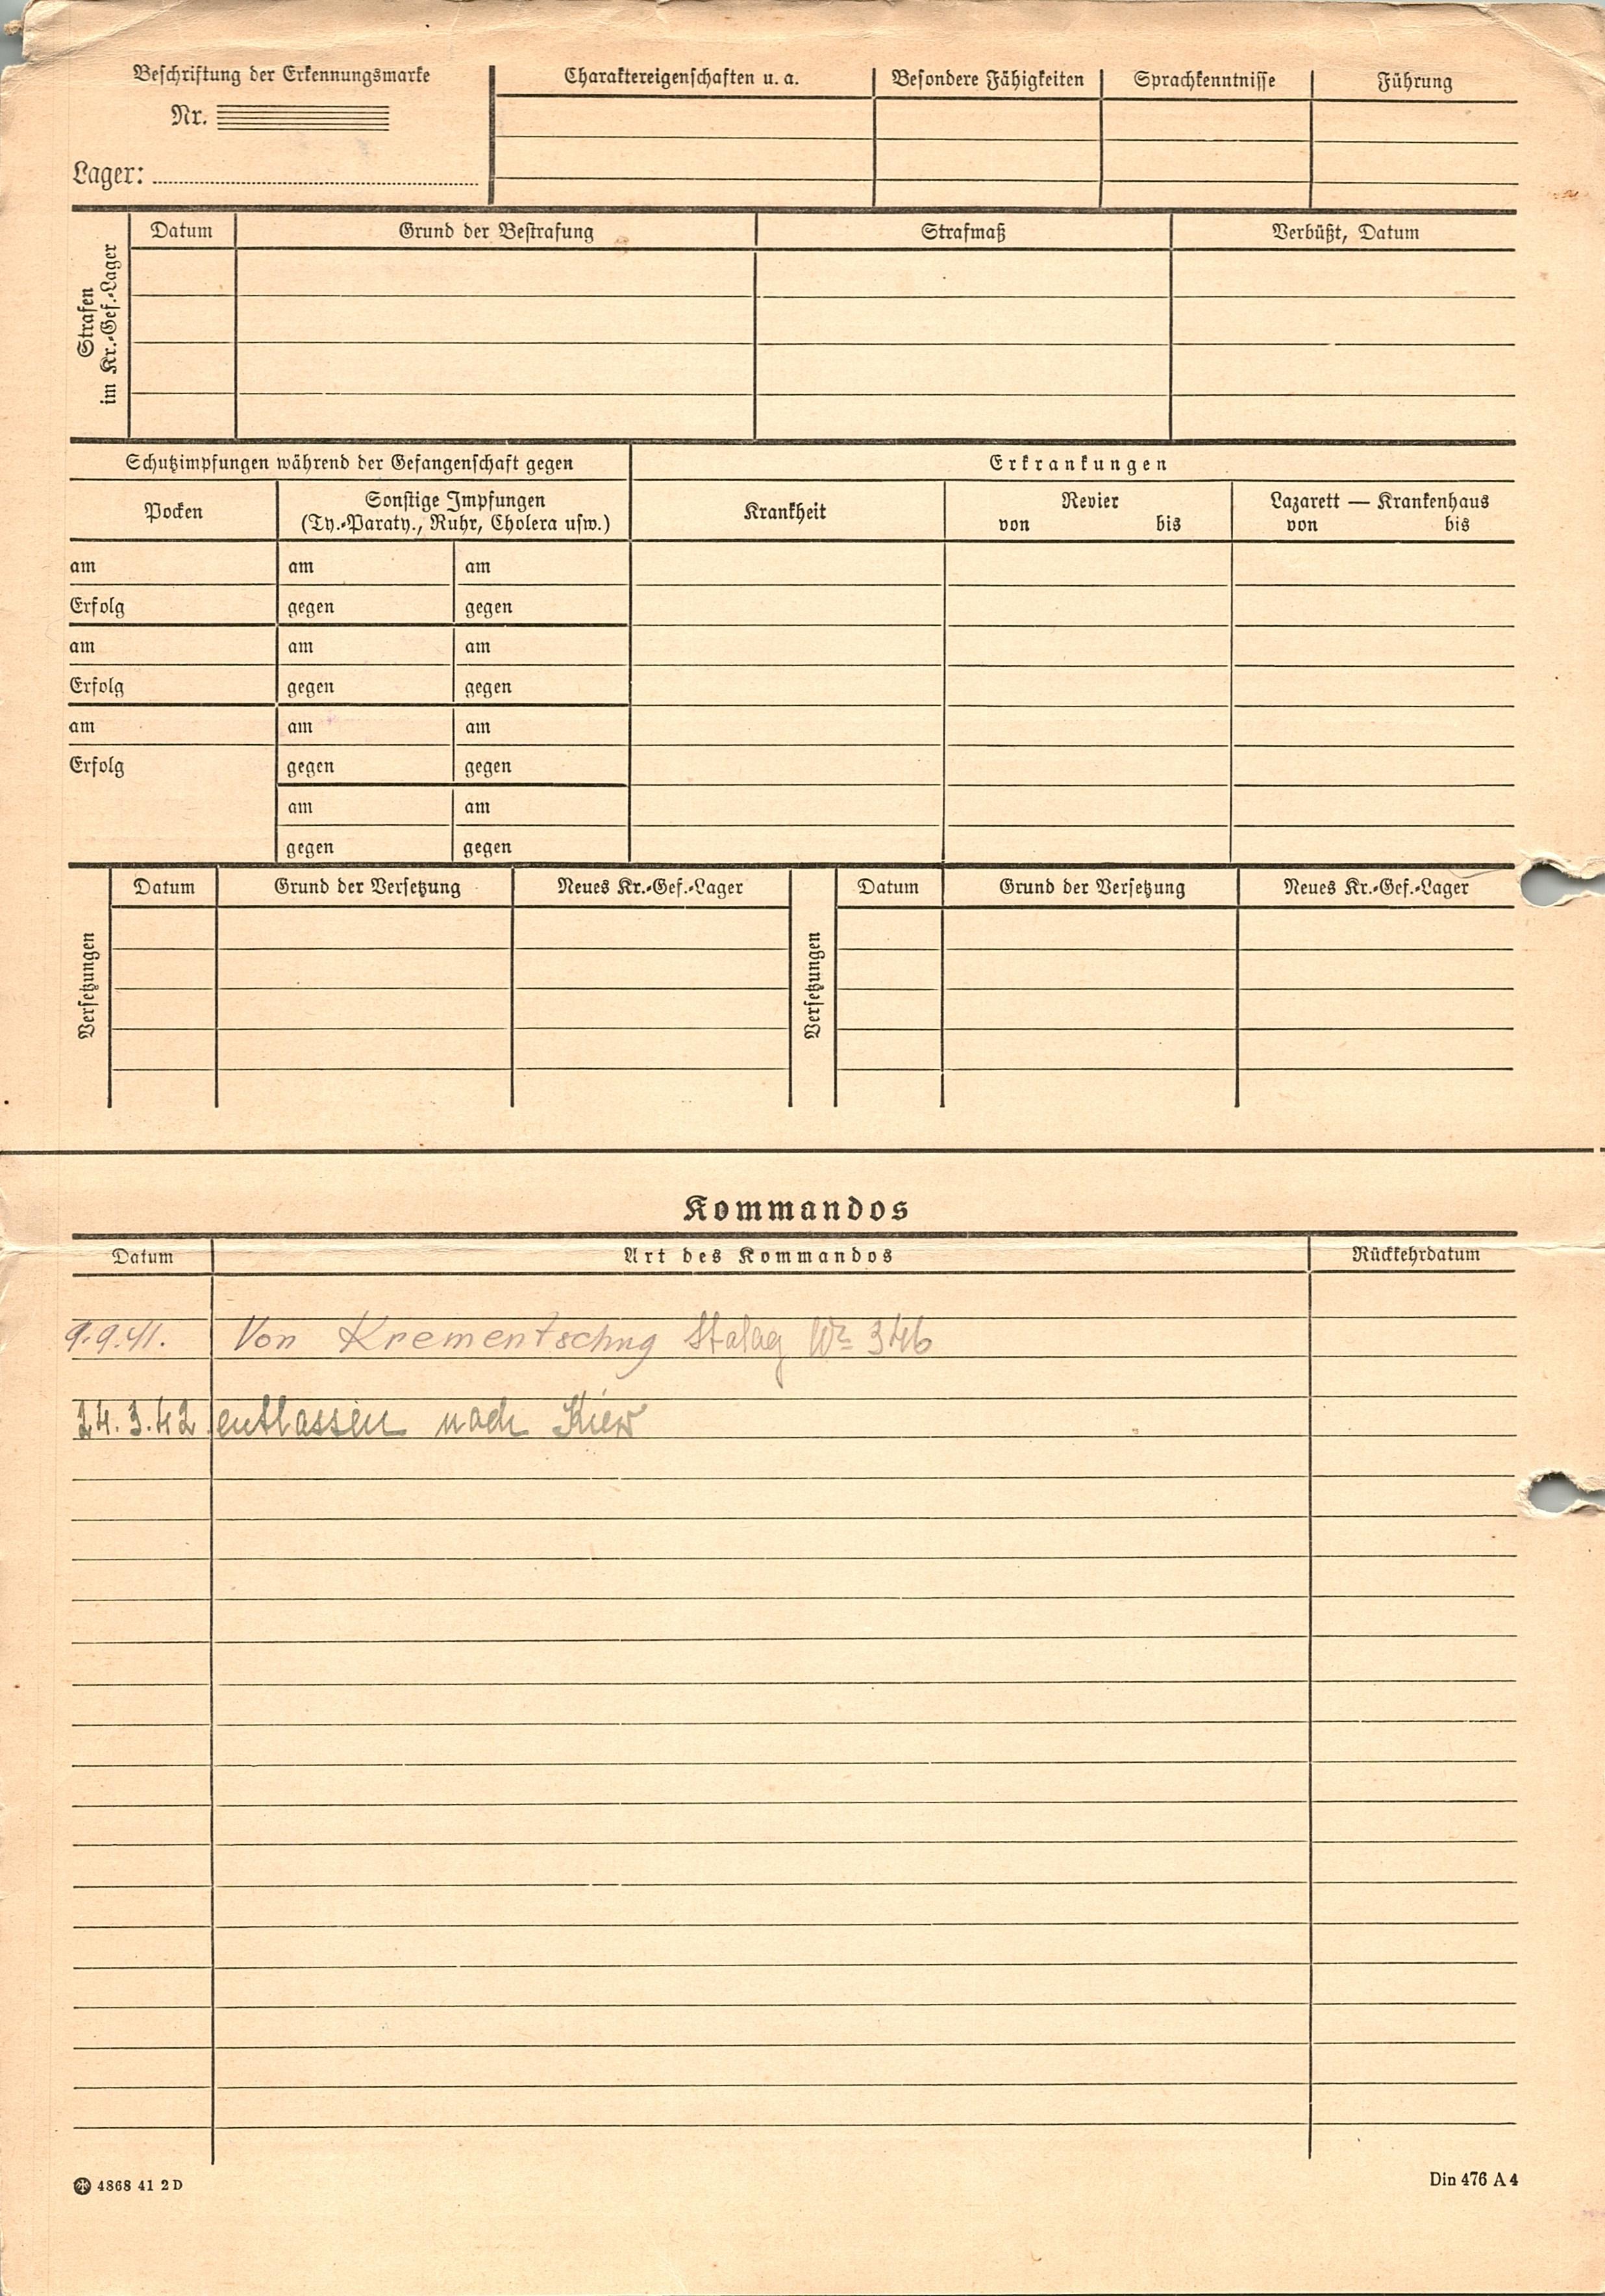 Beschriftung der Erkennungsmarke
Nr.
Lager:
Charaktereigenschaften u. a.
Besondere Fähigkeiten
Sprachkenntnisse
Führung
Strafen
im Kr.-Gef.-Lager
Datum
Grund der Bestrafung
Strafmaß
Verbüßt, Datum
Schutzimpfungen während der Gefangenschaft gegen
Erkrankungen
Pocken
Sonstige Impfungen
(Ty.-Paraty., Ruhr, Cholera usw.)
Krankheit
Revier
von bis
Lazarett — Krankenhaus
von bis
am am am
Erfolg gegen gegen
am am am
Erfolg gegen gegen
am am am
Erfolg gegen gegen
am am
gegen gegen
Versetzungen
Datum
Grund der Versetzung
Neues Kr.-Gef.-Lager
Versetzungen
Datum
Grund der Versetzung
Neues Kr.-Gef.-Lager
Kommandos
Datum
Art des Kommandos
Rückkehrdatum
9.9.41. Von Krementschug Stalag № 346
24.3.42 entlassen nach Kiew
4868 41 2 D
Din 476 A 4